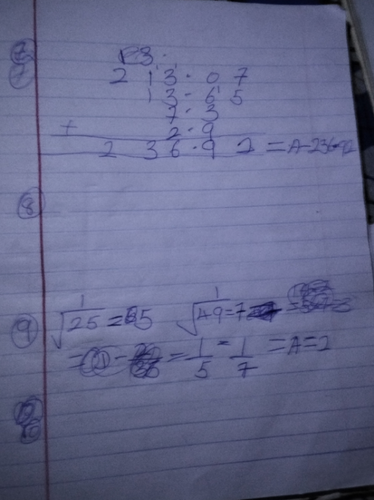 7
3
2 13.07
13.65
7.3
+ 2.9
2 36.92 = A-236.92
8
9 √25 = 5 √49 = 7
= 1/5 - 1/7 = A = 2
10